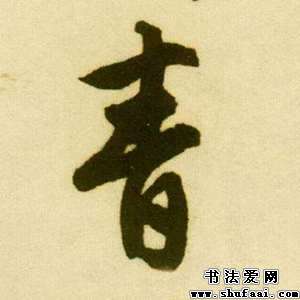 青
书法爱网
www.shufaai.com